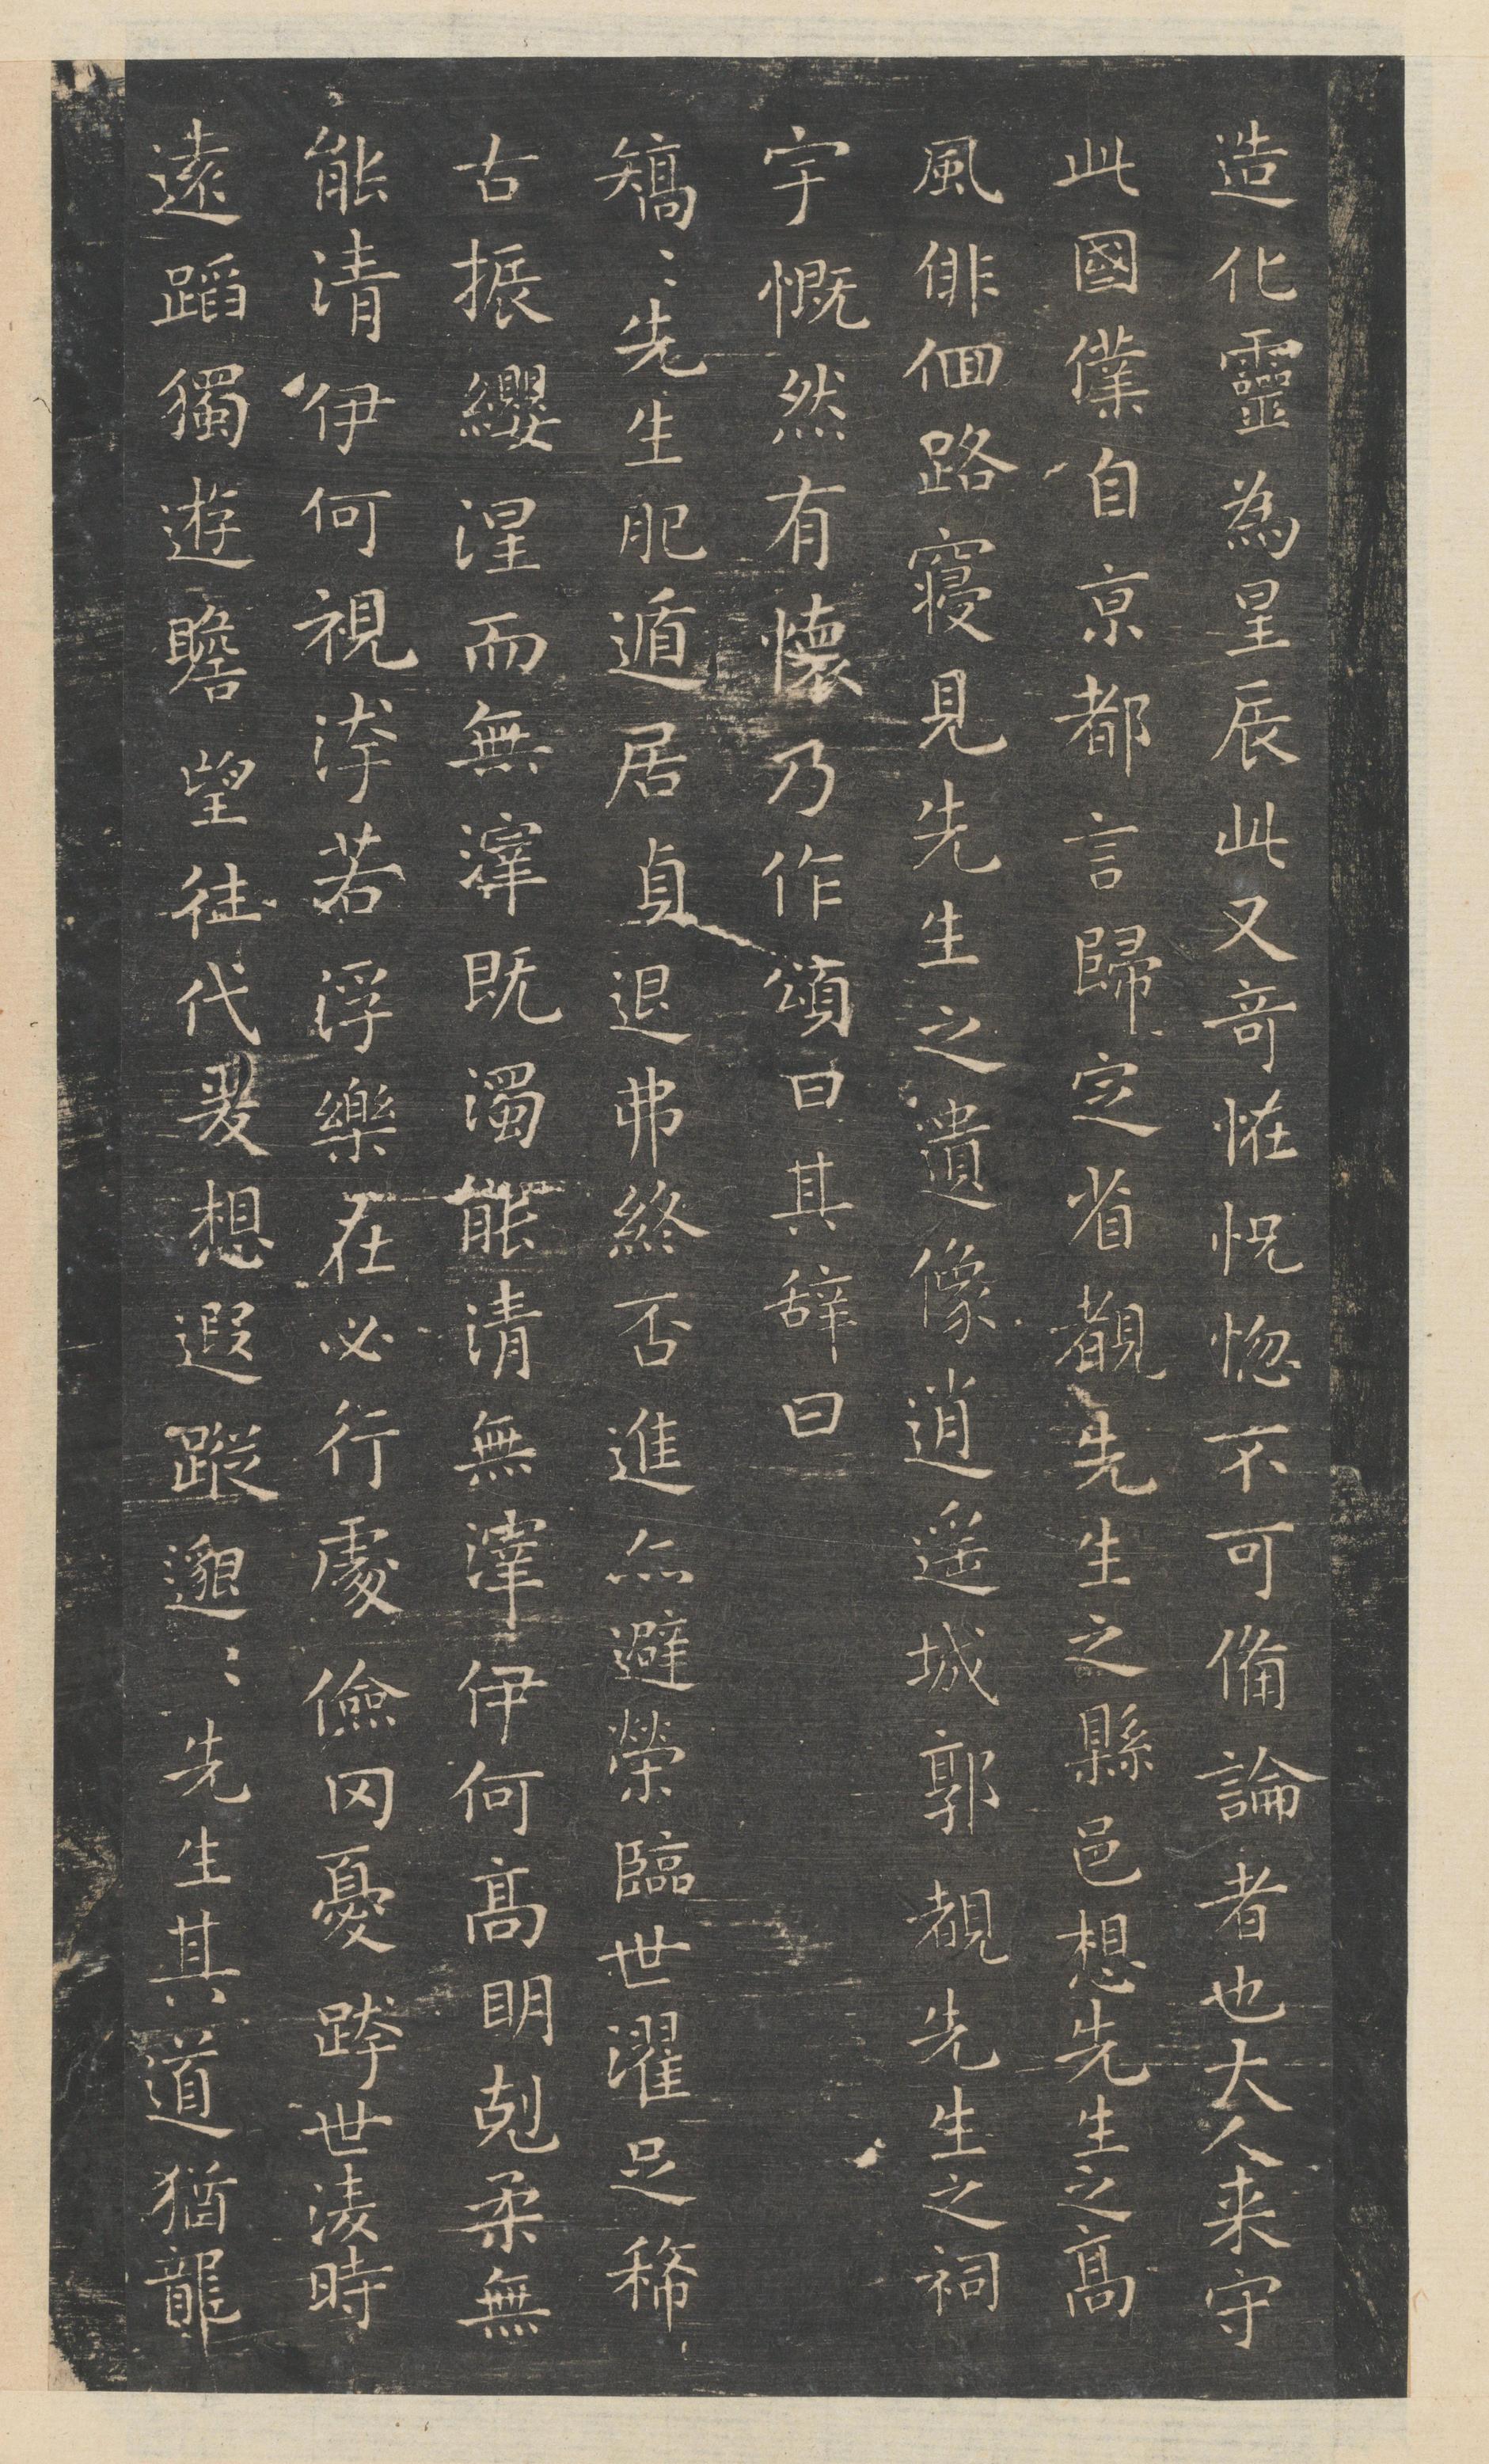 造化靈為星辰此又奇恠怳惚不可備論者也大人来守
此國僕自京都言歸定省覩先生之縣邑想先生之高
風俳佪路寢見先生之遺像逍遥城郭覩先生之祠
宇慨然有懷乃作頌曰其辞曰
矯〻先生肥遁居貞退弗終否進亦避榮臨世濯足稀
古振纓涅而無滓既濁能清無滓伊何高明剋柔無
能清伊何視洿若浮樂在必行處儉罔憂跨世淩時
遠蹈獨遊瞻望往代爰想遐蹤邈〻先生其道猶龍